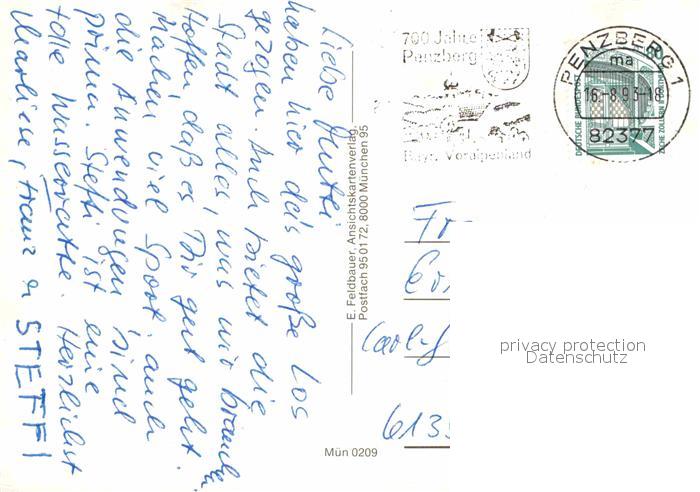 Liebe Mutti.
haben hier das große Los
gezogen. Auch bietet die
Stadt alles, was wir brauchen.
Hoffen daß es Dir gut geht.
Machen viel Sport, auch
die Anwendungen sind
prima. Steffi ist eine
Wasserratte. Herzlichst
Marliese, Franz u STEFFI
E. Feldbauer, Ansichtskartenverlag,
Postfach 95 01 72, 8000 München 95
Mün 0209
700 Jahre
Penzberg
Bayr. Voralpenland
PENZBERG 1
ma
16.-8.93-18
82377
80
DEUTSCHE BUNDESPOST
Fr
613
privacy protection
Datenschutz